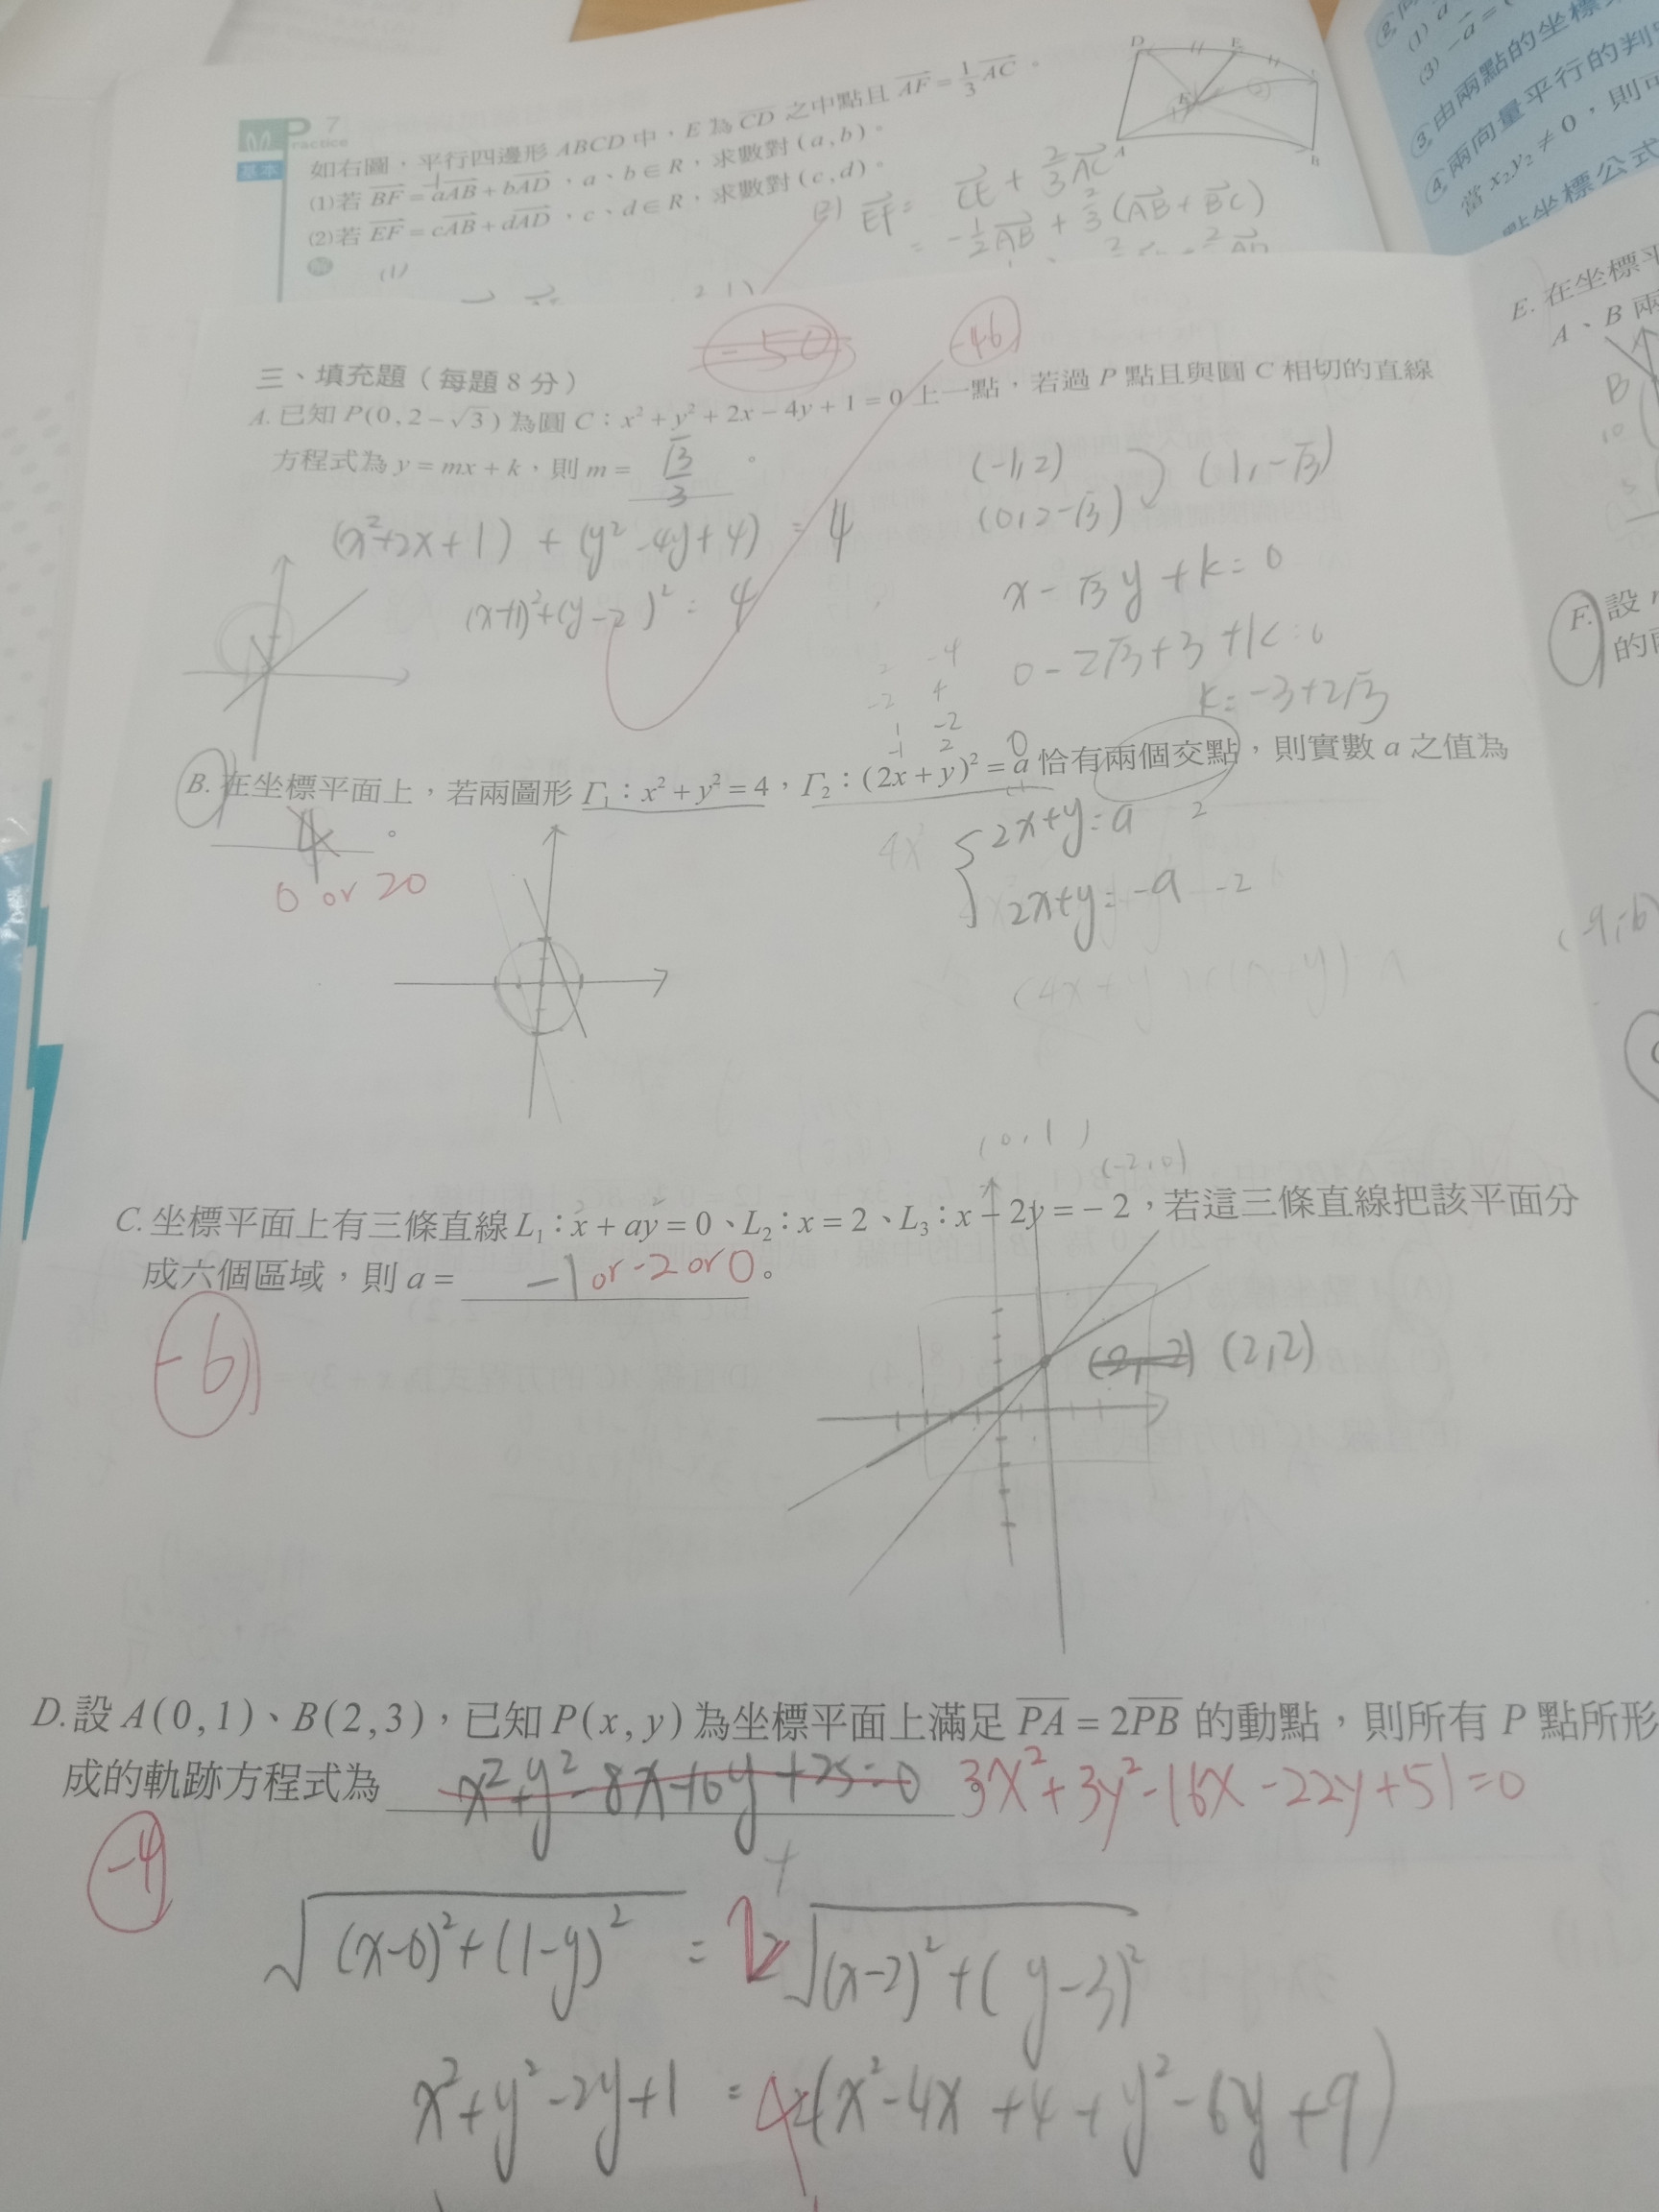 P 7
ractice
基本
如右圖，平行四邊形 ABCD 中，E 為 CD 之中點且 AF = 1/3 AC。
(1)若 BF = aAB + bAD，a、b ∈ R，求數對 (a, b)。
(2)若 EF = cAB + dAD，c、d ∈ R，求數對 (c, d)。
D E
A B
(2) EF = CE + 2/3 AC
= -1/2 AB + 2/3 (AB + BC)
(1)
(1) a
(3) -a =
③由兩點的坐標
④兩向量平行的判
當 x₂y₂ ≠ 0，則
點坐標公式
-50
-46
三、填充題（每題 8 分）
A. 已知 P(0, 2 − √3) 為圓 C：x² + y² + 2x − 4y + 1 = 0 上一點，若過 P 點且與圓 C 相切的直線
方程式為 y = mx + k，則 m = √3/3 。
(x²+2x+1) + (y²-4y+4) = 4
(x+1)²+(y-2)² = 4
(-1, 2)
(0, 2-√3)
(1, -√3)
x - √3 y + k = 0
0 - 2√3 + 3 + k = 0
k = -3+2√3
2 -4
-2 4
1 -2
-1 2
B. 在坐標平面上，若兩圖形 Γ₁：x² + y² = 4，Γ₂：(2x + y)² = a 恰有兩個交點，則實數 a 之值為
4 。
0 or 20
2x+y = a 2
2x+y = -a -2
(0, 1)
(-2, 0)
C. 坐標平面上有三條直線 L₁：x + ay = 0、L₂：x = 2、L₃：x − 2y = − 2，若這三條直線把該平面分
成六個區域，則 a = -1 or -2 or 0 。
-6
(2, 2)
D. 設 A(0, 1)、B(2, 3)，已知 P(x, y) 為坐標平面上滿足 PA = 2PB 的動點，則所有 P 點所形
成的軌跡方程式為 x²+y²-8x-10y+25=0 3x²+3y²-16x-22y+51=0
-4
√(x-0)²+(1-y)² = 2√(x-2)²+(y-3)²
x²+y²-2y+1 = 4(x²-4x+4+y²-6y+9)
E. 在坐標平
A、B 兩
B
10
F. 設
的